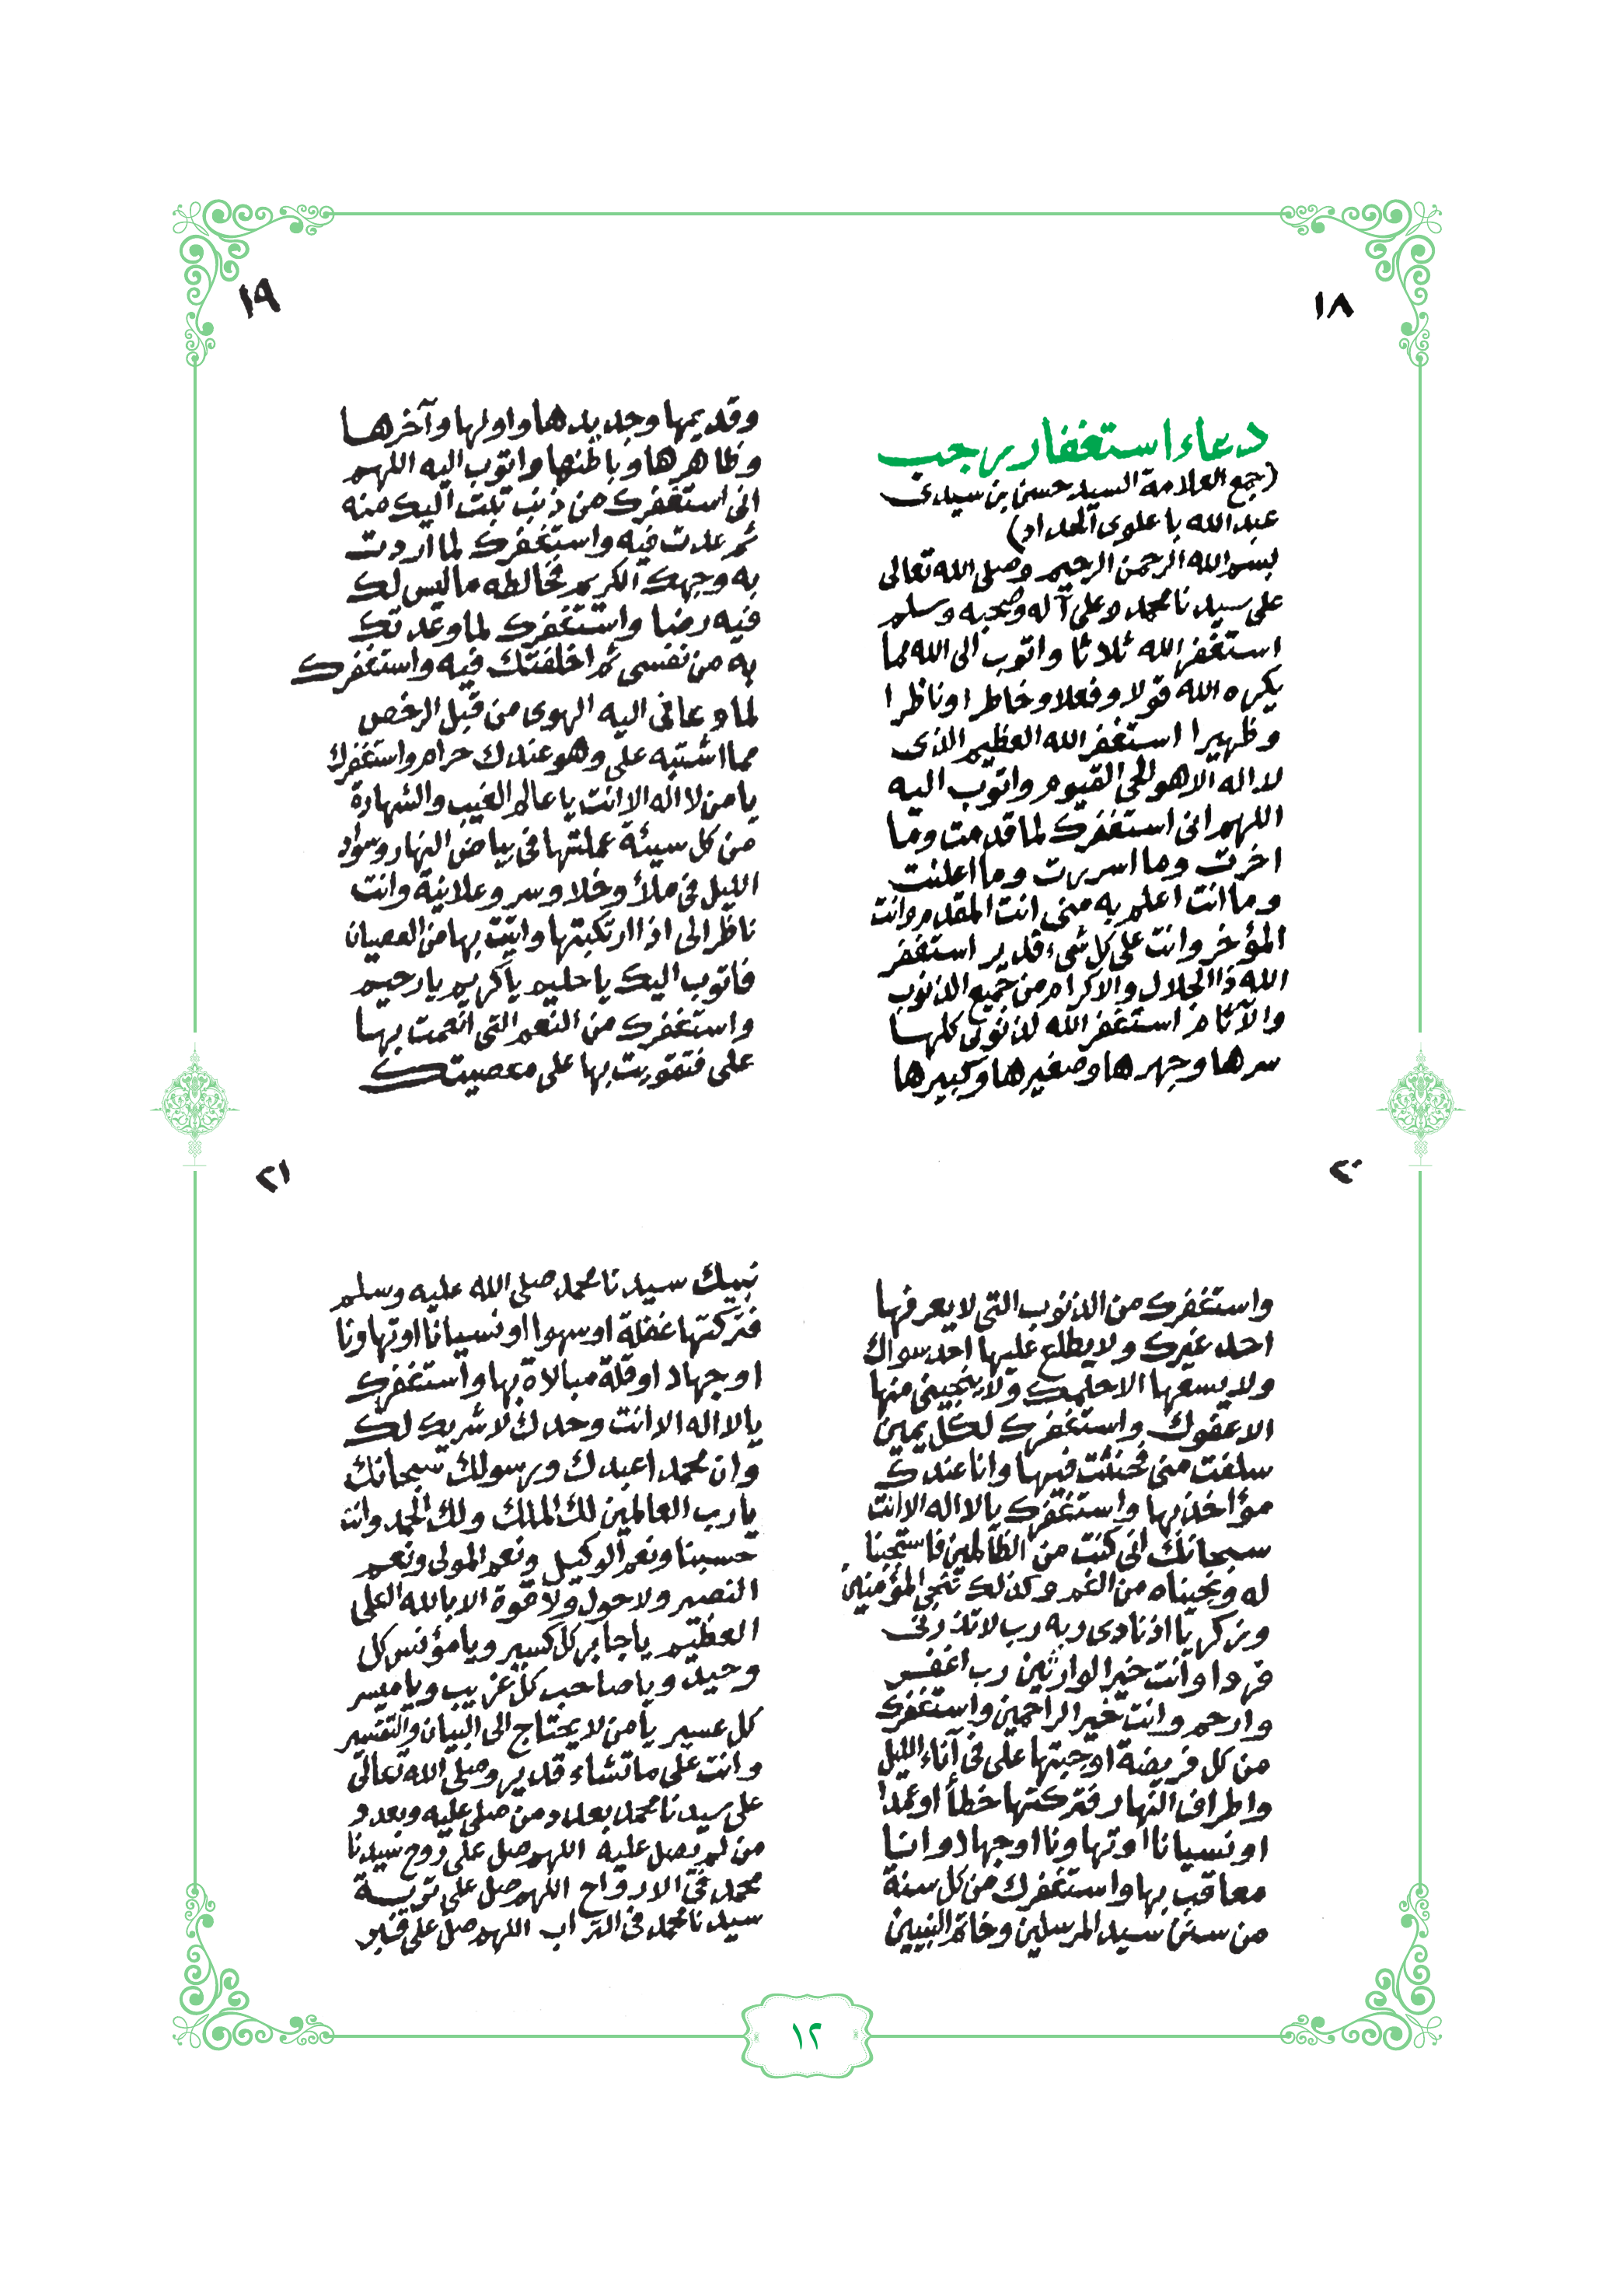 ١٨
دعاء استغفار رجب
(جمع العلامة السيد حسن بن سيدى
عبد الله با علوى آلحداد)
بسم الله الرحمن الرحيم وصلى الله تعالى
على سيدنا محمد وعلى آله وصحبه وسلم
استغفر الله ثلاثا واتوب الى الله مما
يكره الله قولا وفعلا وخاطرا وناظرا
وظهيرا استغفر الله العظيم الذى
لا اله الا هو الحى القيوم واتوب اليه
اللهم انى استغفرك لما قدمت وما
اخرت وما اسررت وما اعلنت
وما انت اعلم به منى انت المقدم وانت
المؤخر وانت على كل شىء قدير استغفر
الله ذا الجلال والاكرام من جميع الذنوب
والآثام استغفر الله لذنوبى كلها
سرها وجهرها وصغيرها وكبيرها
١٩
وقديمها وجديدها واولها وآخرها
وظاهرها وباطنها واتوب اليه اللهم
انى استغفرك من ذنب تبت اليك منه
ثم عدت فيه واستغفرك لما اردت
به وجهك الكريم فخالطه ما ليس لك
فيه رضا واستغفرك لما وعدتك
به من نفسى ثم اخلفتك فيه واستغفرك
لما دعانى اليه الهوى من قبل الرخص
مما اشتبه على وهو عندك حرام واستغفرك
يا من لا اله الا انت يا عالم الغيب والشهادة
من كل سيئة عملتها فى بياض النهار وسواد
الليل فى ملأ وخلا وسر وعلانية وانت
ناظر الى اذا ارتكبتها واتيت بها من العصيان
فاتوب اليك يا حليم يا كريم يا رحيم
واستغفرك من النعم التى انعمت بها
على فتقويت بها على معصيتك
٢٠
واستغفرك من الذنوب التى لا يعرفها
احد غيرك ولا يطلع عليها احد سواك
ولا يسعها الا حلمك ولا ينجينى منها
الا عفوك واستغفرك لكل يمين
سلفت منى فحنثت فيها وانا عندك
مؤاخذ بها واستغفرك يا لا اله الا انت
سبحانك انى كنت من الظالمين فاستجبنا
له ونجيناه من الغم وكذلك ننجى المؤمنين
وزكريا اذ نادى ربه رب لا تذرنى
فردا وانت خير الوارثين رب اغفر
وارحم وانت خير الراحمين واستغفرك
من كل فريضة اوجبتها على فى آناء الليل
واطراف النهار فتركتها خطأ او عمدا
او نسيانا او تهاونا او جهلا وانا
معاقب بها واستغفرك من كل سنة
من سنن سيد المرسلين وخاتم النبيين
٢١
نبيك سيدنا محمد صلى الله عليه وسلم
فتركتها غفلة او سهوا او نسيانا او تهاونا
او جهلا او قلة مبالاة بها واستغفرك
يا لا اله الا انت وحدك لا شريك لك
وان محمدا عبدك ورسولك سبحانك
يا رب العالمين لك الملك ولك الحمد وانت
حسبنا ونعم الوكيل ونعم المولى ونعم
النصير ولا حول ولا قوة الا بالله العلى
العظيم يا جابر كل كسير ويا مؤنس كل
وحيد ويا صاحب كل غريب ويا ميسر
كل عسير يا من لا يحتاج الى البيان والتفسير
وانت على ما تشاء قدير وصلى الله تعالى
على سيدنا محمد بعدد من صلى عليه وبعدد
من لم يصل عليه اللهم صل على روح سيدنا
محمد فى الارواح اللهم صل على تربة
سيدنا محمد فى التراب اللهم صل على قبر
١٢